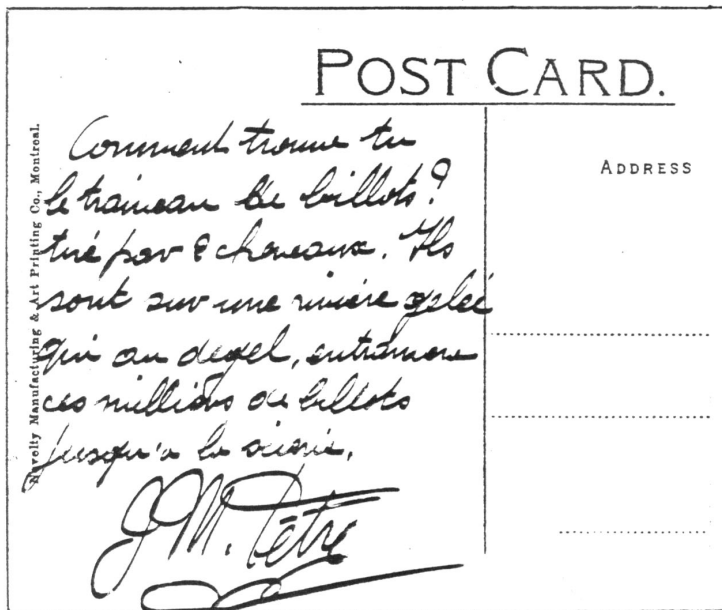 POST CARD.
ADDRESS
Novelty Manufacturing & Art Printing Co., Montreal.
Comment trouve tu
le traineau de billots?
tiré par 2 chevaux. Ils
sont sur une rivière gelée
qui au degel, entrainera
ces milliers de billots
jusqu'a la scierie.
J. M. Pêtre